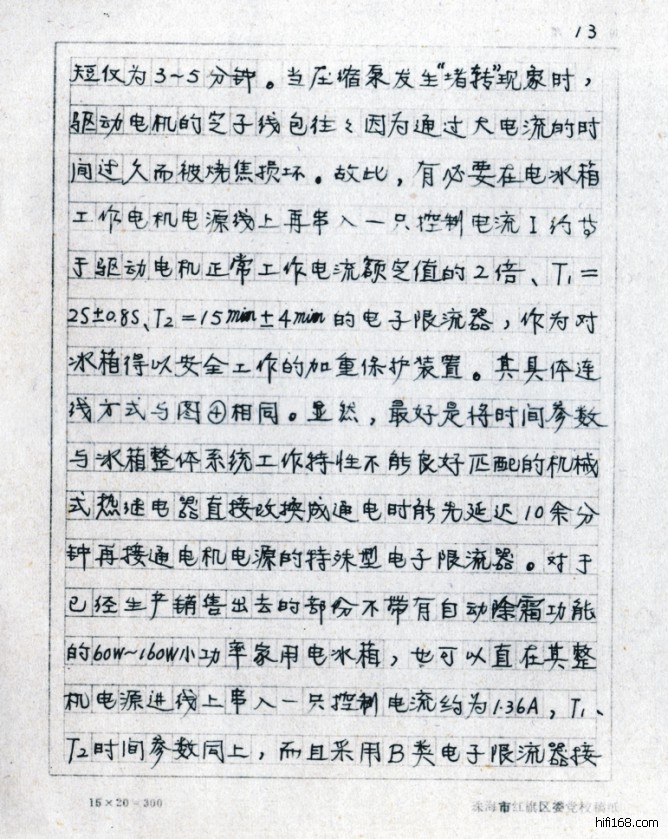 13
短仅为3~5分钟。当压缩泵发生"堵转"现象时，
驱动电机的定子线包往々因为通过大电流的时
间过久而被烧焦损坏。故此，有必要在电冰箱
工作电机电源线上再串入一只控制电流I约等
于驱动电机正常工作电流额定值的2倍、T₁=
2S±0.8S、T₂=15min±4min的电子限流器，作为对
冰箱得以安全工作的加重保护装置。其具体连
线方式与图④相同。显然，最好是将时间参数
与冰箱整体系统工作特性不能良好匹配的机械
式热继电器直接改换成通电时能先延迟10余分
钟再接通电机电源的特殊型电子限流器。对于
已经生产销售出去的部份不带有自动除霜功能
的60W~160W小功率家用电冰箱，也可以直在其整
机电源进线上串入一只控制电流约为1.36A，T₁、
T₂时间参数同上，而且采用B类电子限流器接
15×20=300
珠海市红旗区委党校稿纸
hifi168.com